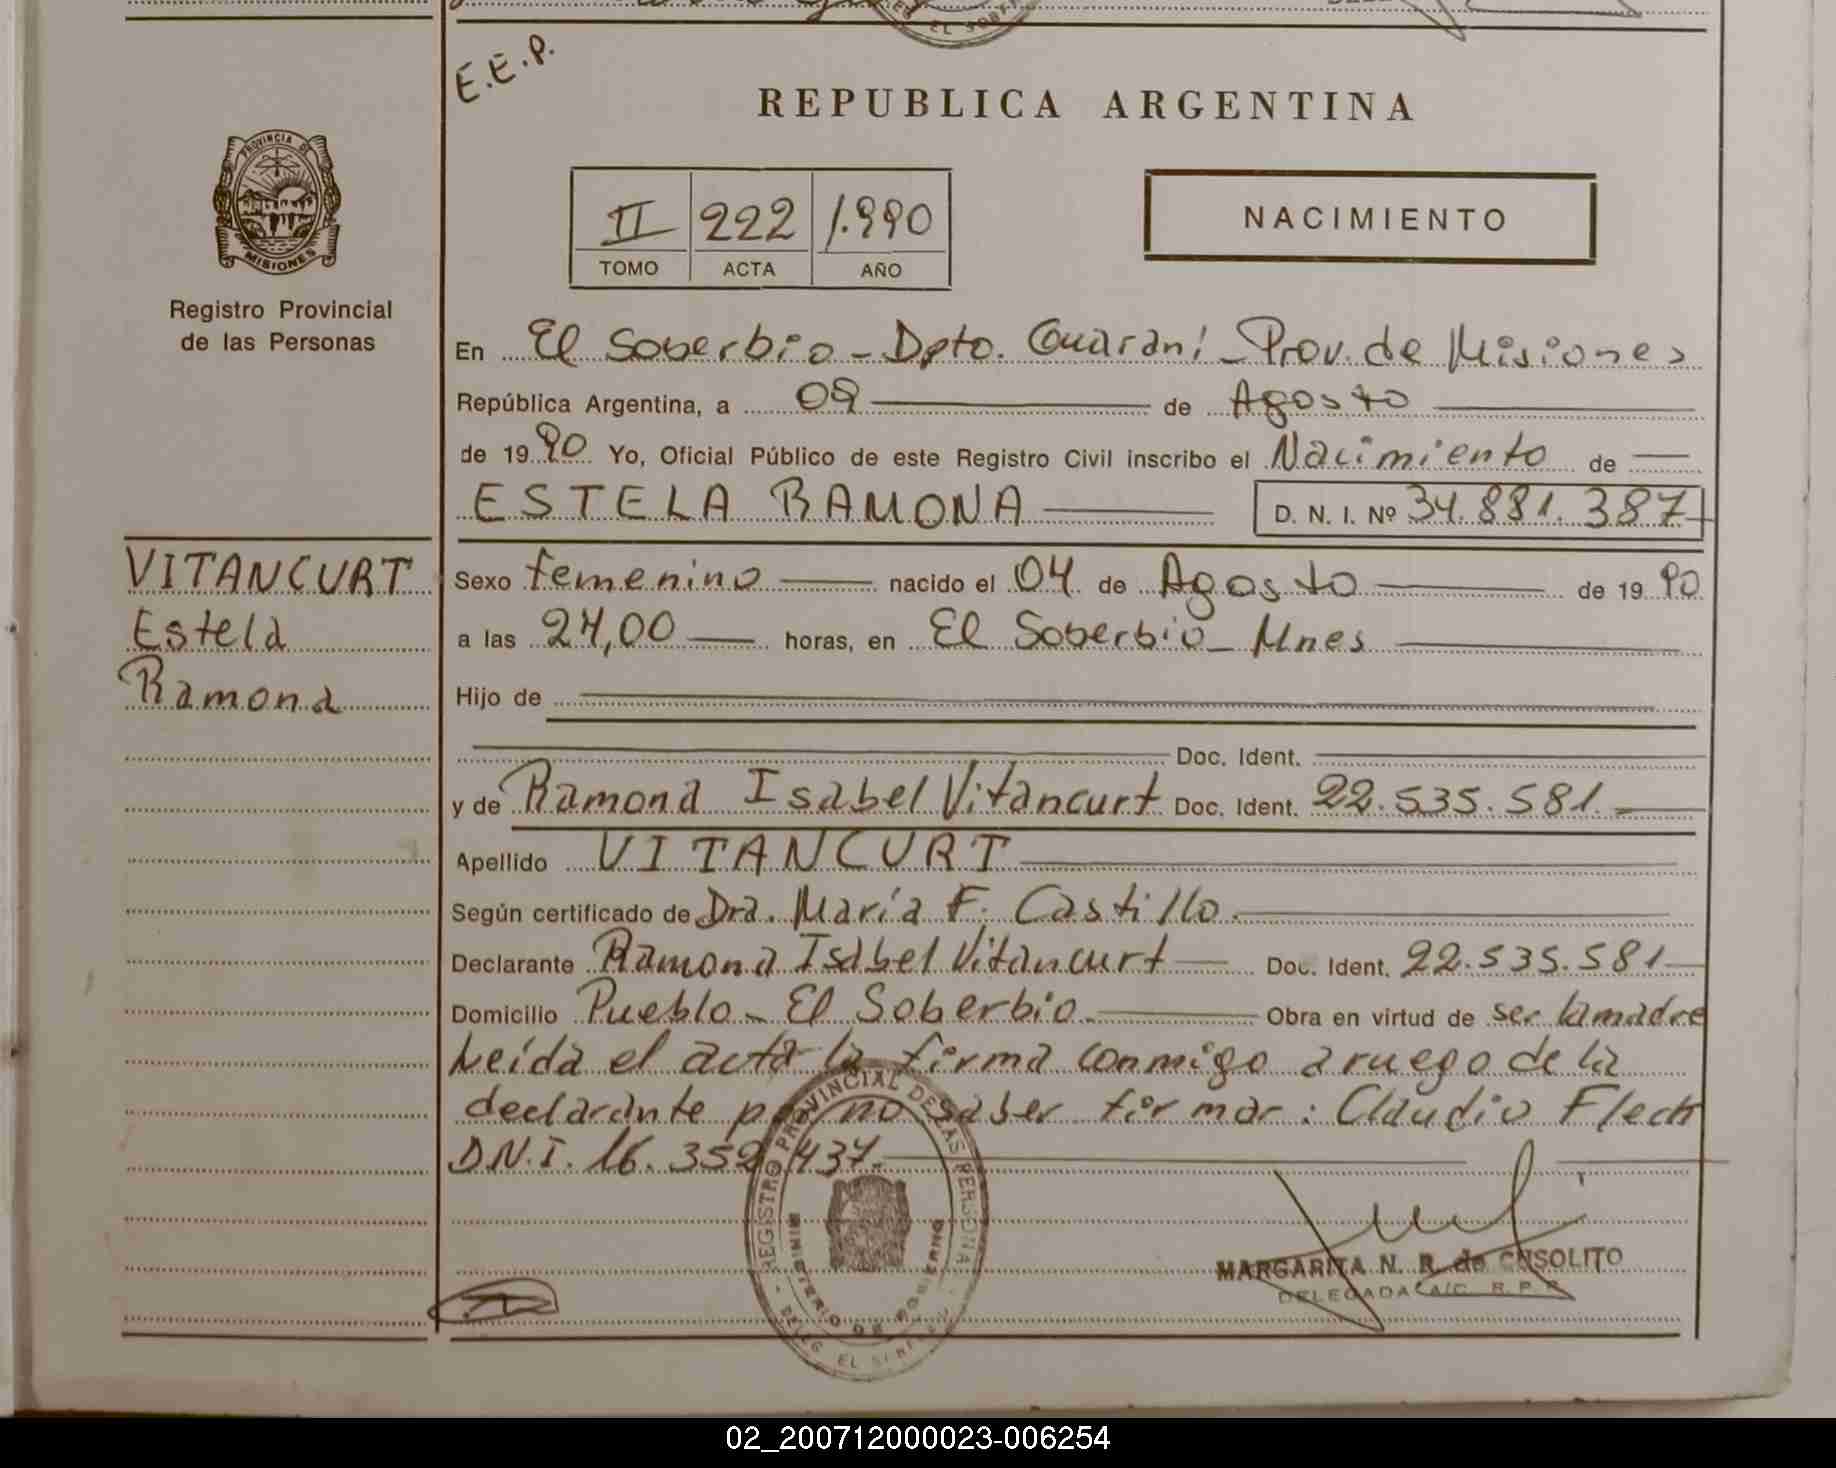 E.E.P.
REPUBLICA ARGENTINA
PROVINCIA DE
MISIONES
Registro Provincial
de las Personas
II 222 1.990
TOMO ACTA AÑO
NACIMIENTO
En El Soberbio - Dpto. Guaraní - Prov. de Misiones
República Argentina, a 09 de Agosto
de 1990 Yo, Oficial Público de este Registro Civil inscribo el Nacimiento de
ESTELA RAMONA D. N. I. Nº 34.881.387
VITANCURT
Estela
Ramona
Sexo femenino nacido el 04 de Agosto de 1990
a las 24,00 horas, en El Soberbio - Mnes
Hijo de
Doc. Ident.
y de Ramona Isabel Vitancurt Doc. Ident. 22.535.581.
Apellido VITANCURT
Según certificado de Dra. María F. Castillo.
Declarante Ramona Isabel Vitancurt Doc. Ident. 22.535.581
Domicilio Pueblo - El Soberbio. Obra en virtud de ser la madre
Leída el acta la firma conmigo a ruego de la
declarante por no saber firmar: Claudio Flech
D.N.I. 16.352.437.
REGISTRO PROVINCIAL DE LAS PERSONAS
MINISTERIO DE GOBIERNO
DELEG. EL SOBERBIO
MARGARITA N. R. de CUSOLITO
DELEGADA A/C. R. P. P.
02_200712000023-006254